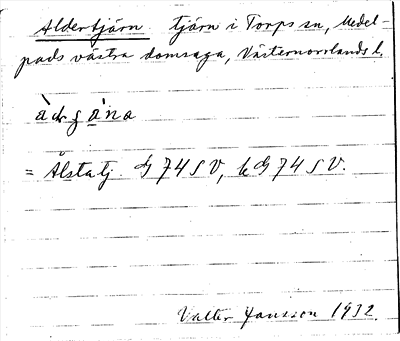 Aldertjärn. tjärn i Torps sn, Medel-
pads västra domsaga, Västernorrlands l.
= Ålstatj. G 74 SV, kG 74 SV.
Valter Jansson 1932.